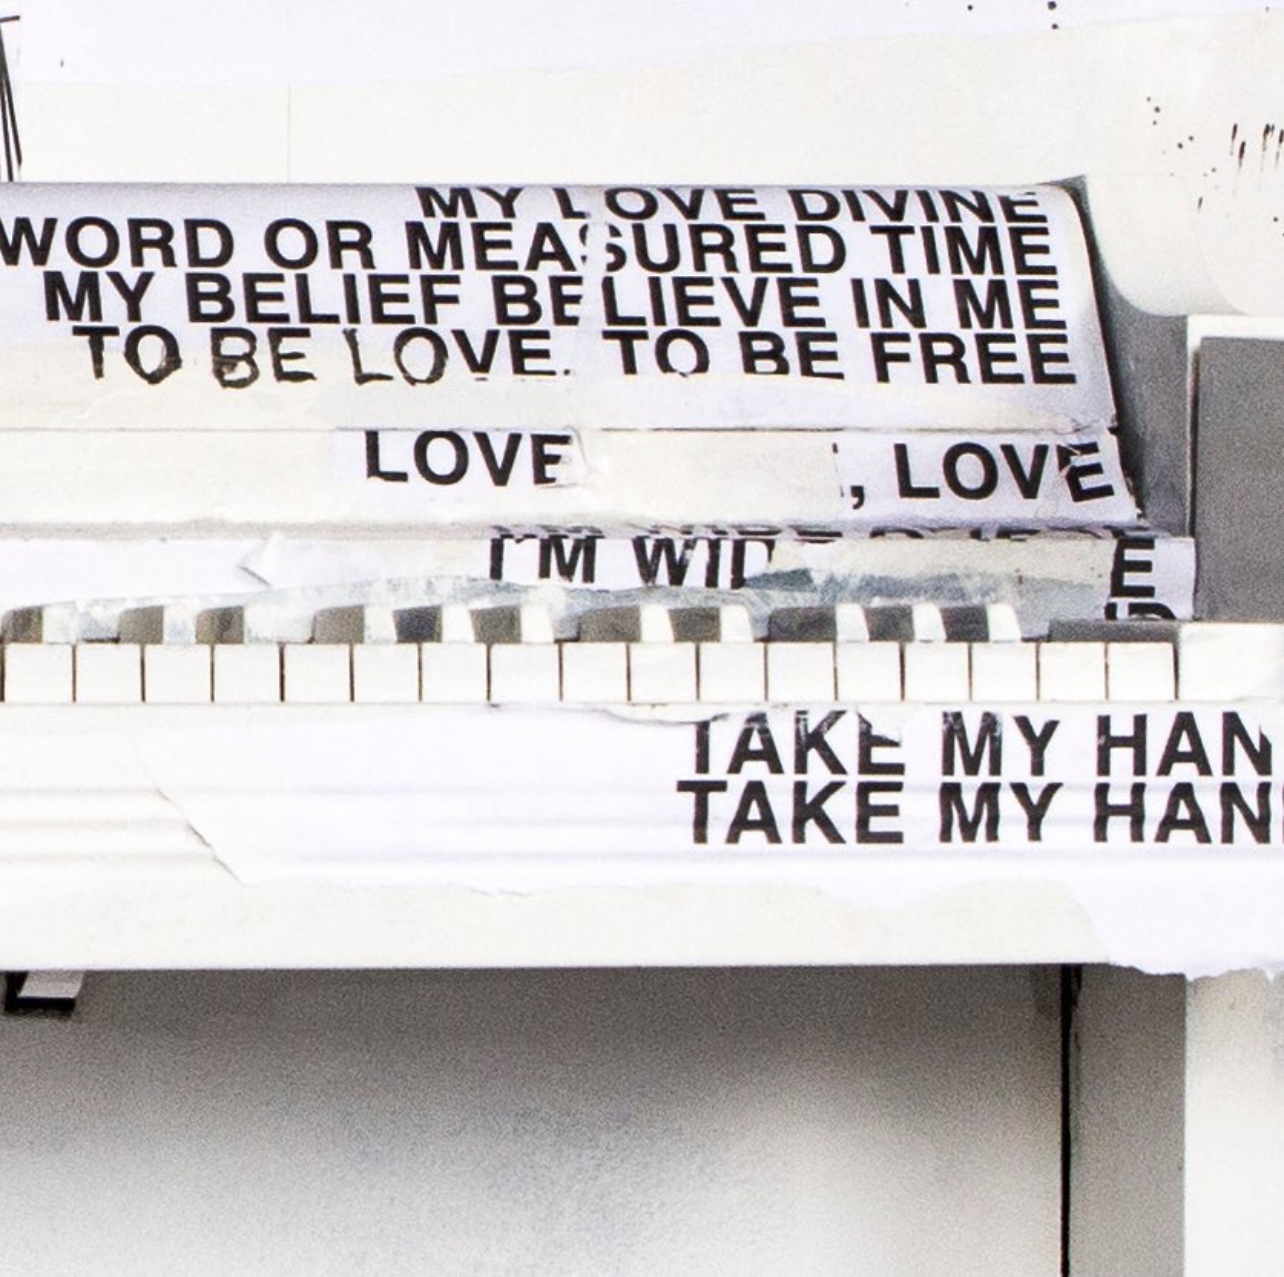 MY LOVE DIVINE
WORD OR MEASURED TIME
MY BELIEF BELIEVE IN ME
TO BE LOVE. TO BE FREE
LOVE , LOVE
I'M
TAKE MY HAN
TAKE MY HAN